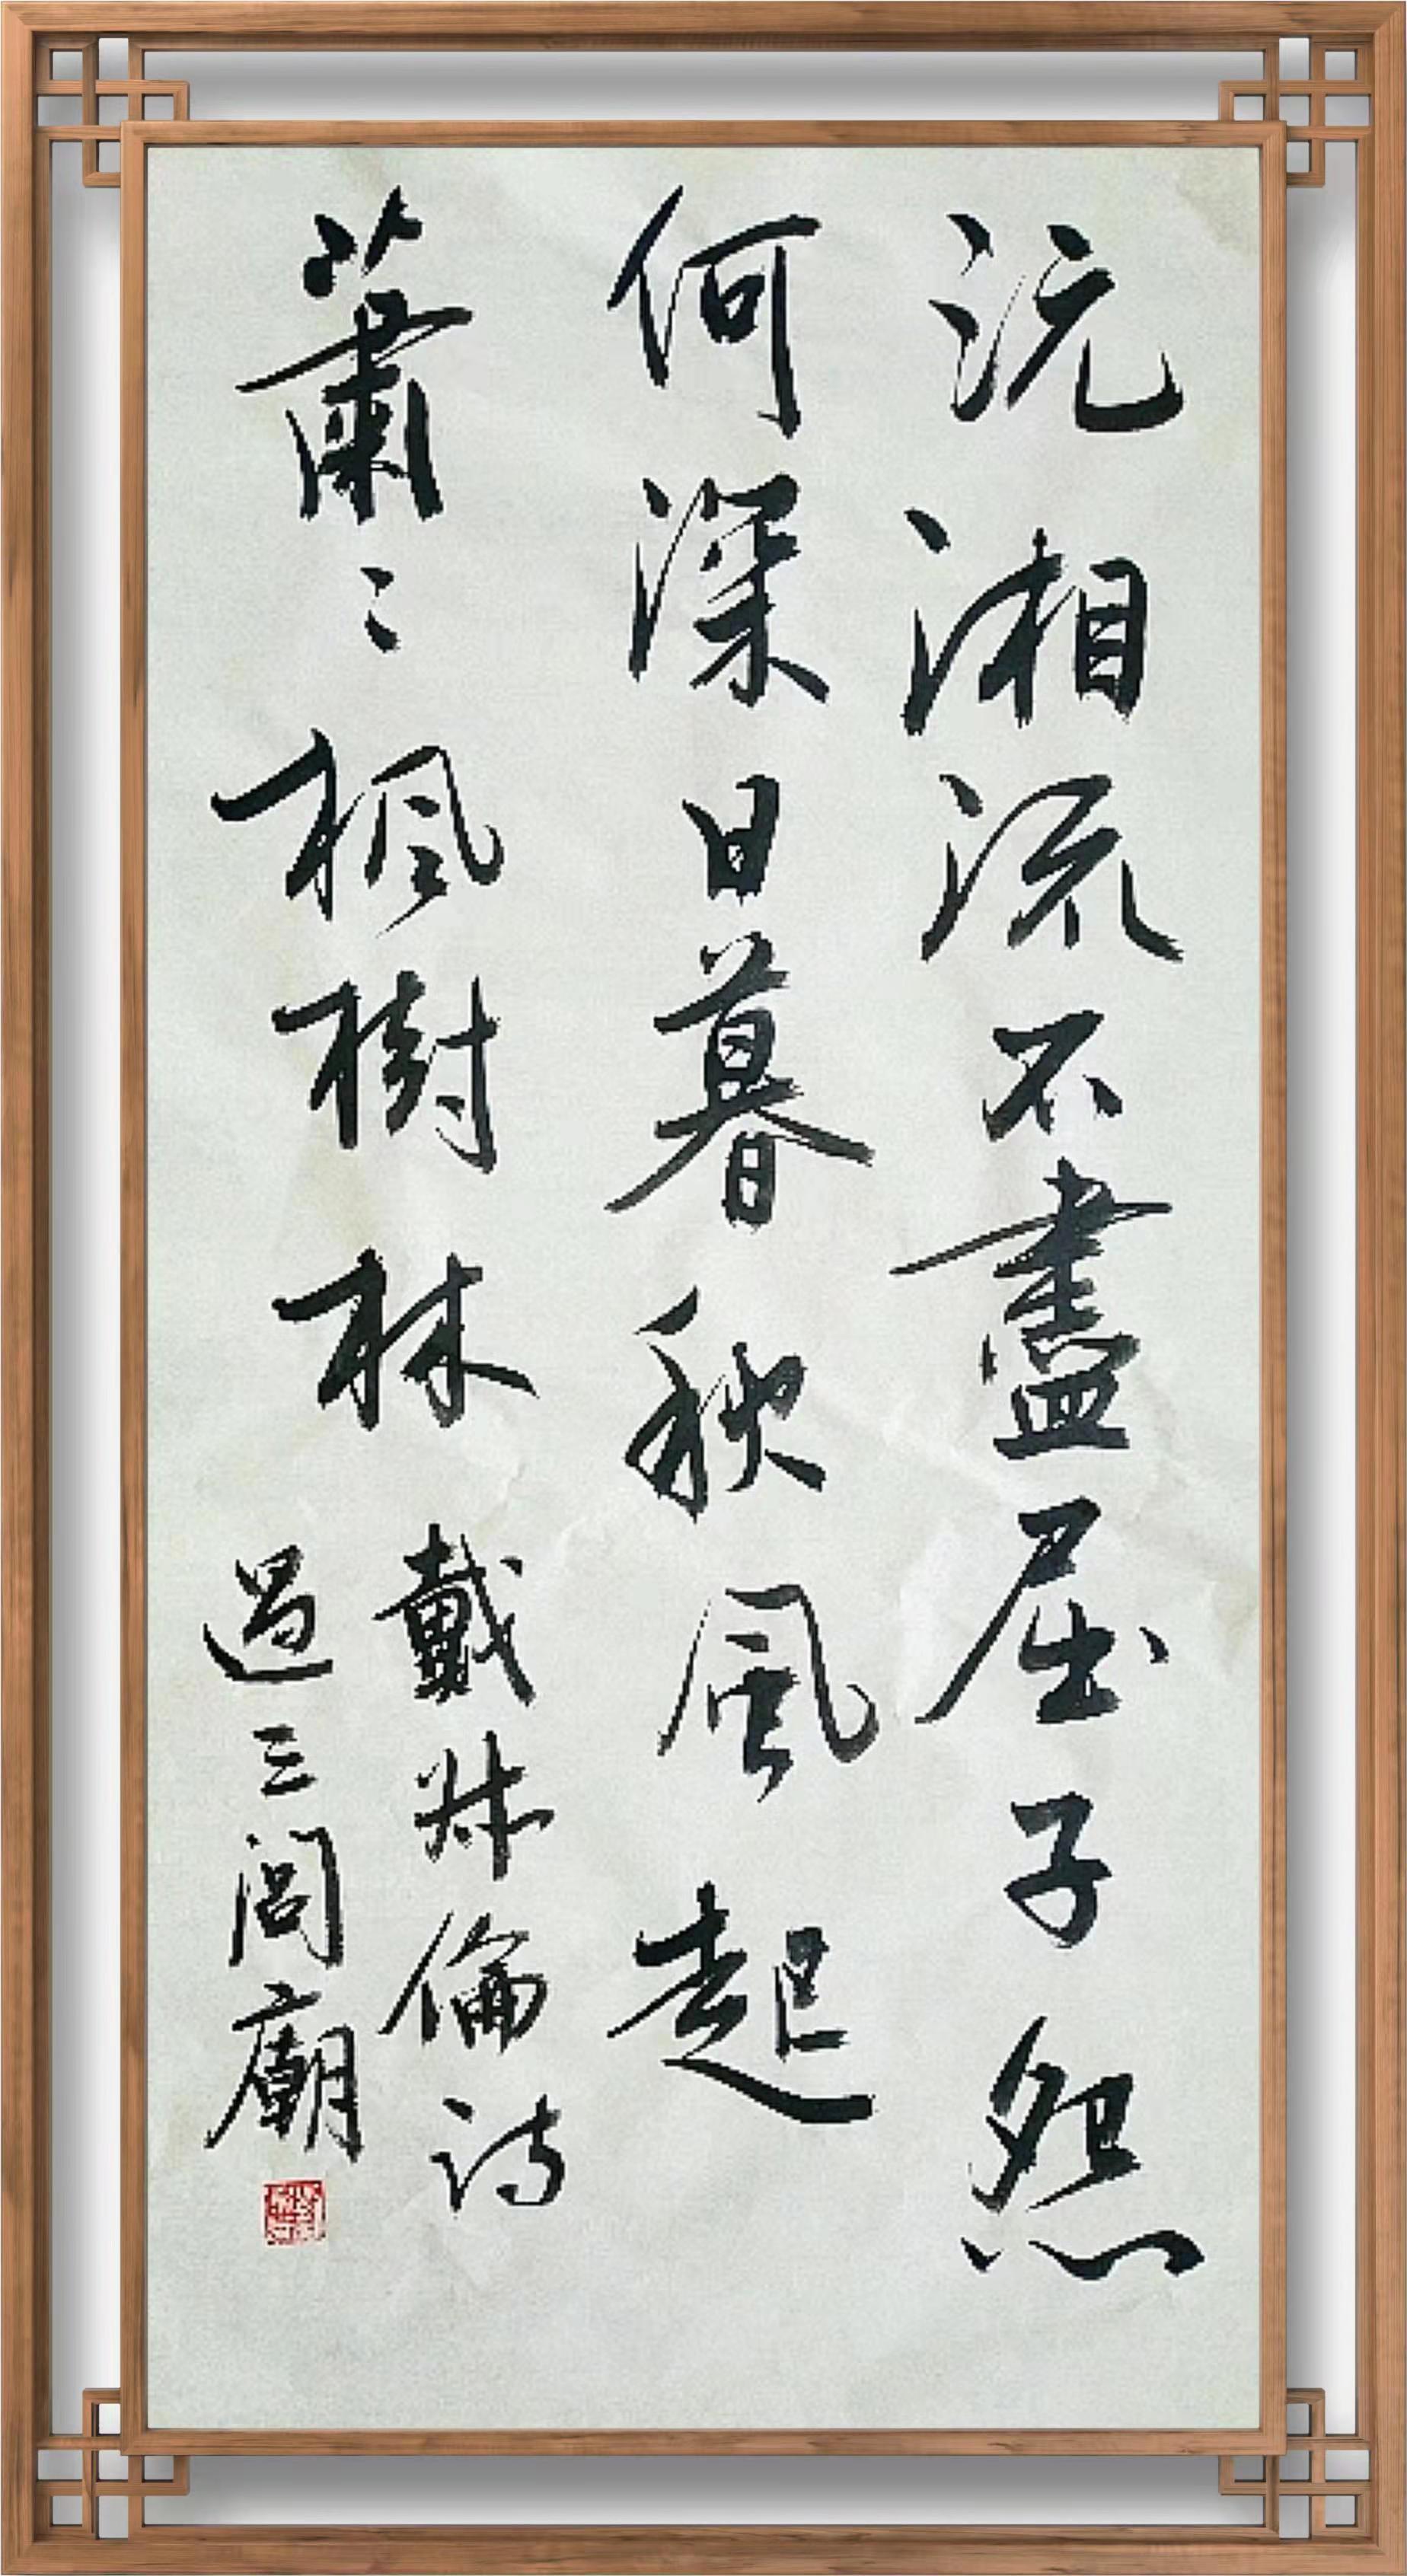 沅湘流不盡屈子怨
何深日暮秋風起
蕭〻楓樹林
戴叔倫詩
過三閭廟